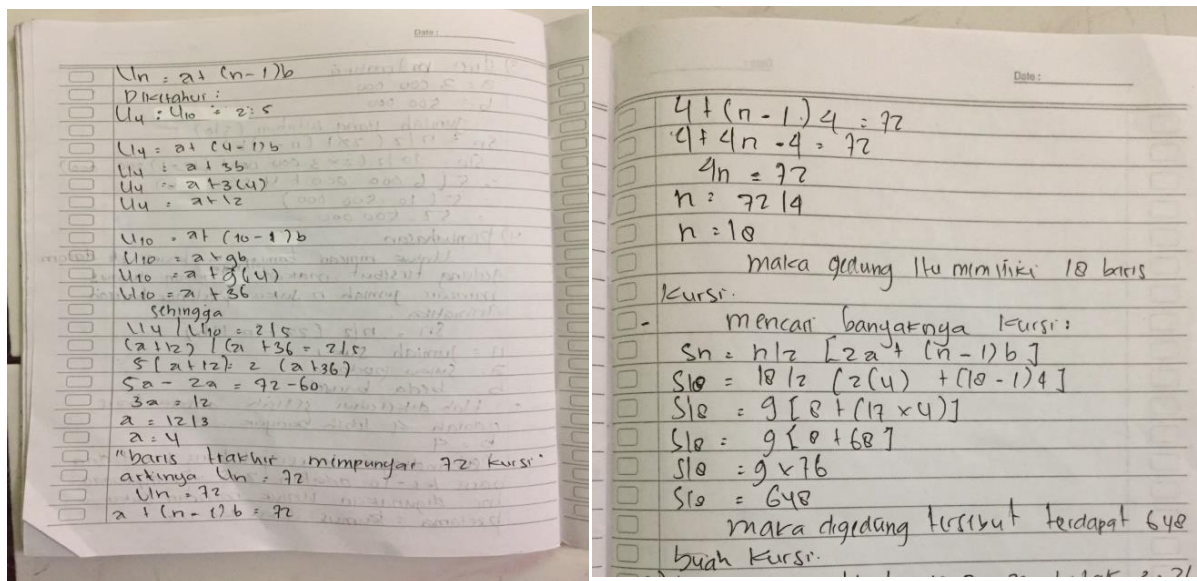 Date :
Un = a + (n - 1) b
Diketahui :
U4 : U10 = 2 : 5
U4 = a + (4 - 1) b
U4 = a + 3b
U4 = a + 3(4)
U4 = a + 12
U10 = a + (10 - 1) b
U10 = a + 9b
U10 = a + 9(4)
U10 = a + 36
sehingga
U4 / U10 = 2/5
(a + 12) / (a + 36 = 2/5
5 (a + 12) = 2 (a + 36)
5a - 2a = 72 - 60
3a = 12
a = 12/3
a = 4
"baris trakhir mimpunyai 72 kursi"
artinya Un = 72
Un = 72
a + (n - 1) b = 72
Date :
4 + (n - 1) 4 = 72
4 + 4n - 4 = 72
4n = 72
n = 72/4
n = 18
maka gedung itu mimiliki 18 baris
kursi.
- mencari banyaknya kursi :
Sn = n/2 [2a + (n - 1) b]
S18 = 18/2 (2(4) + (18 - 1) 4]
S18 = 9 [8 + (17 x 4)]
S18 = 9 [8 + 68]
S18 = 9 x 76
S18 = 648
maka digedung tirsibut terdapat 648
buah kursi.